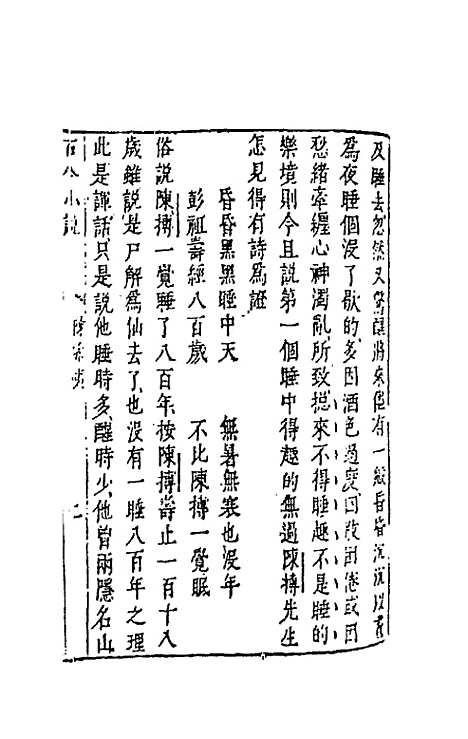 及睡去忽然又驚醒將來儘有一般昏昏沉沉以晝
爲夜睡個沒了歇的多因酒色過度四肢困倦或因
愁緒牽纏心神濁亂所致總來不得睡趣不是睡的
樂境則今且說第一個睡中得趣的無過陳摶先生
怎見得有詩爲證
昏昏黑黑睡中天 無暑無寒也沒年
彭祖壽經八百歲 不比陳摶一覺眠
俗說陳摶一覺睡了八百年按陳摶壽止一百十八
歲雖說是尸解爲仙去了也沒有一睡八百年之理
此是諢話只是說他睡時多醒時少他曾兩隱名山
古今小說